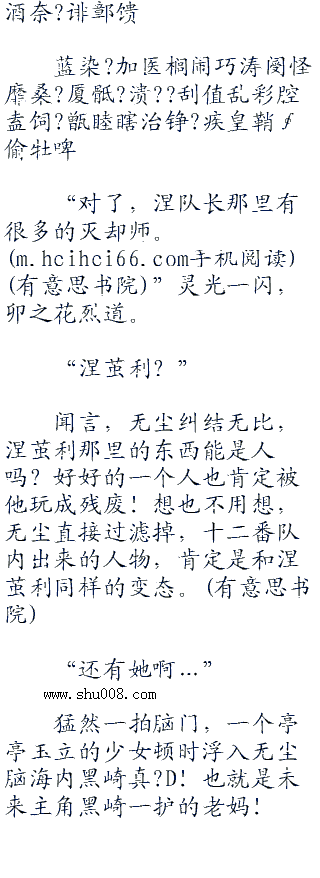 酒奈?诽鄣馈
蓝染?加医榈闹巧涛闵怪
靡桑?厦骶?溃??刮值乱彩腔
盍饲?甑睦瞎治铮?疾皇鞘∮
偷牡啤
“对了，涅队长那里有
很多的灭却师。
(m.hcihci66.com手机阅读)
(有意思书院)”灵光一闪，
卯之花烈道。
“涅茧利？”
闻言，无尘纠结无比，
涅茧利那里的东西能是人
吗？好好的一个人也肯定被
他玩成残废！想也不用想，
无尘直接过滤掉，十二番队
内出来的人物，肯定是和涅
茧利同样的变态。(有意思书
院)
“还有她啊…”
www.shu008.com
猛然一拍脑门，一个亭
亭玉立的少女顿时浮入无尘
脑海内黑崎真?D！也就是未
来主角黑崎一护的老妈！